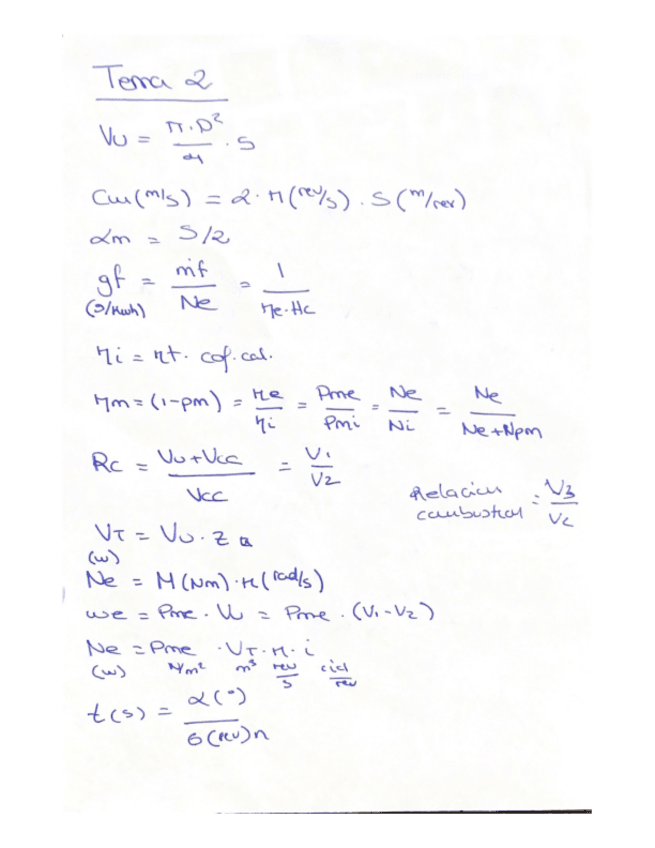 Tema 2
Vu = π·D²/4 · S
Cm (m/s) = 2 · n (rev/s) · S (m/rev)
αm = S/2
gf = ṁf/Ne = 1/(ηe·Hc)
(g/kwh)
ηi = ηt · cof. cal.
ηm = (1-pm) = ηe/ηi = Pme/Pmi = Ne/Ni = Ne/(Ne+Npm)
Rc = (Vu+Vcc)/Vcc = V1/V2
Relacion combustion = V3/V2
VT = Vu · z
(w)
Ne = M (Nm) · n (rad/s)
we = Pme · Vu = Pme · (V1-V2)
Ne = Pme · VT · n · i
(w) N/m² m³ rev/s cicl/rev
t (s) = α (°)/6 (rev) n